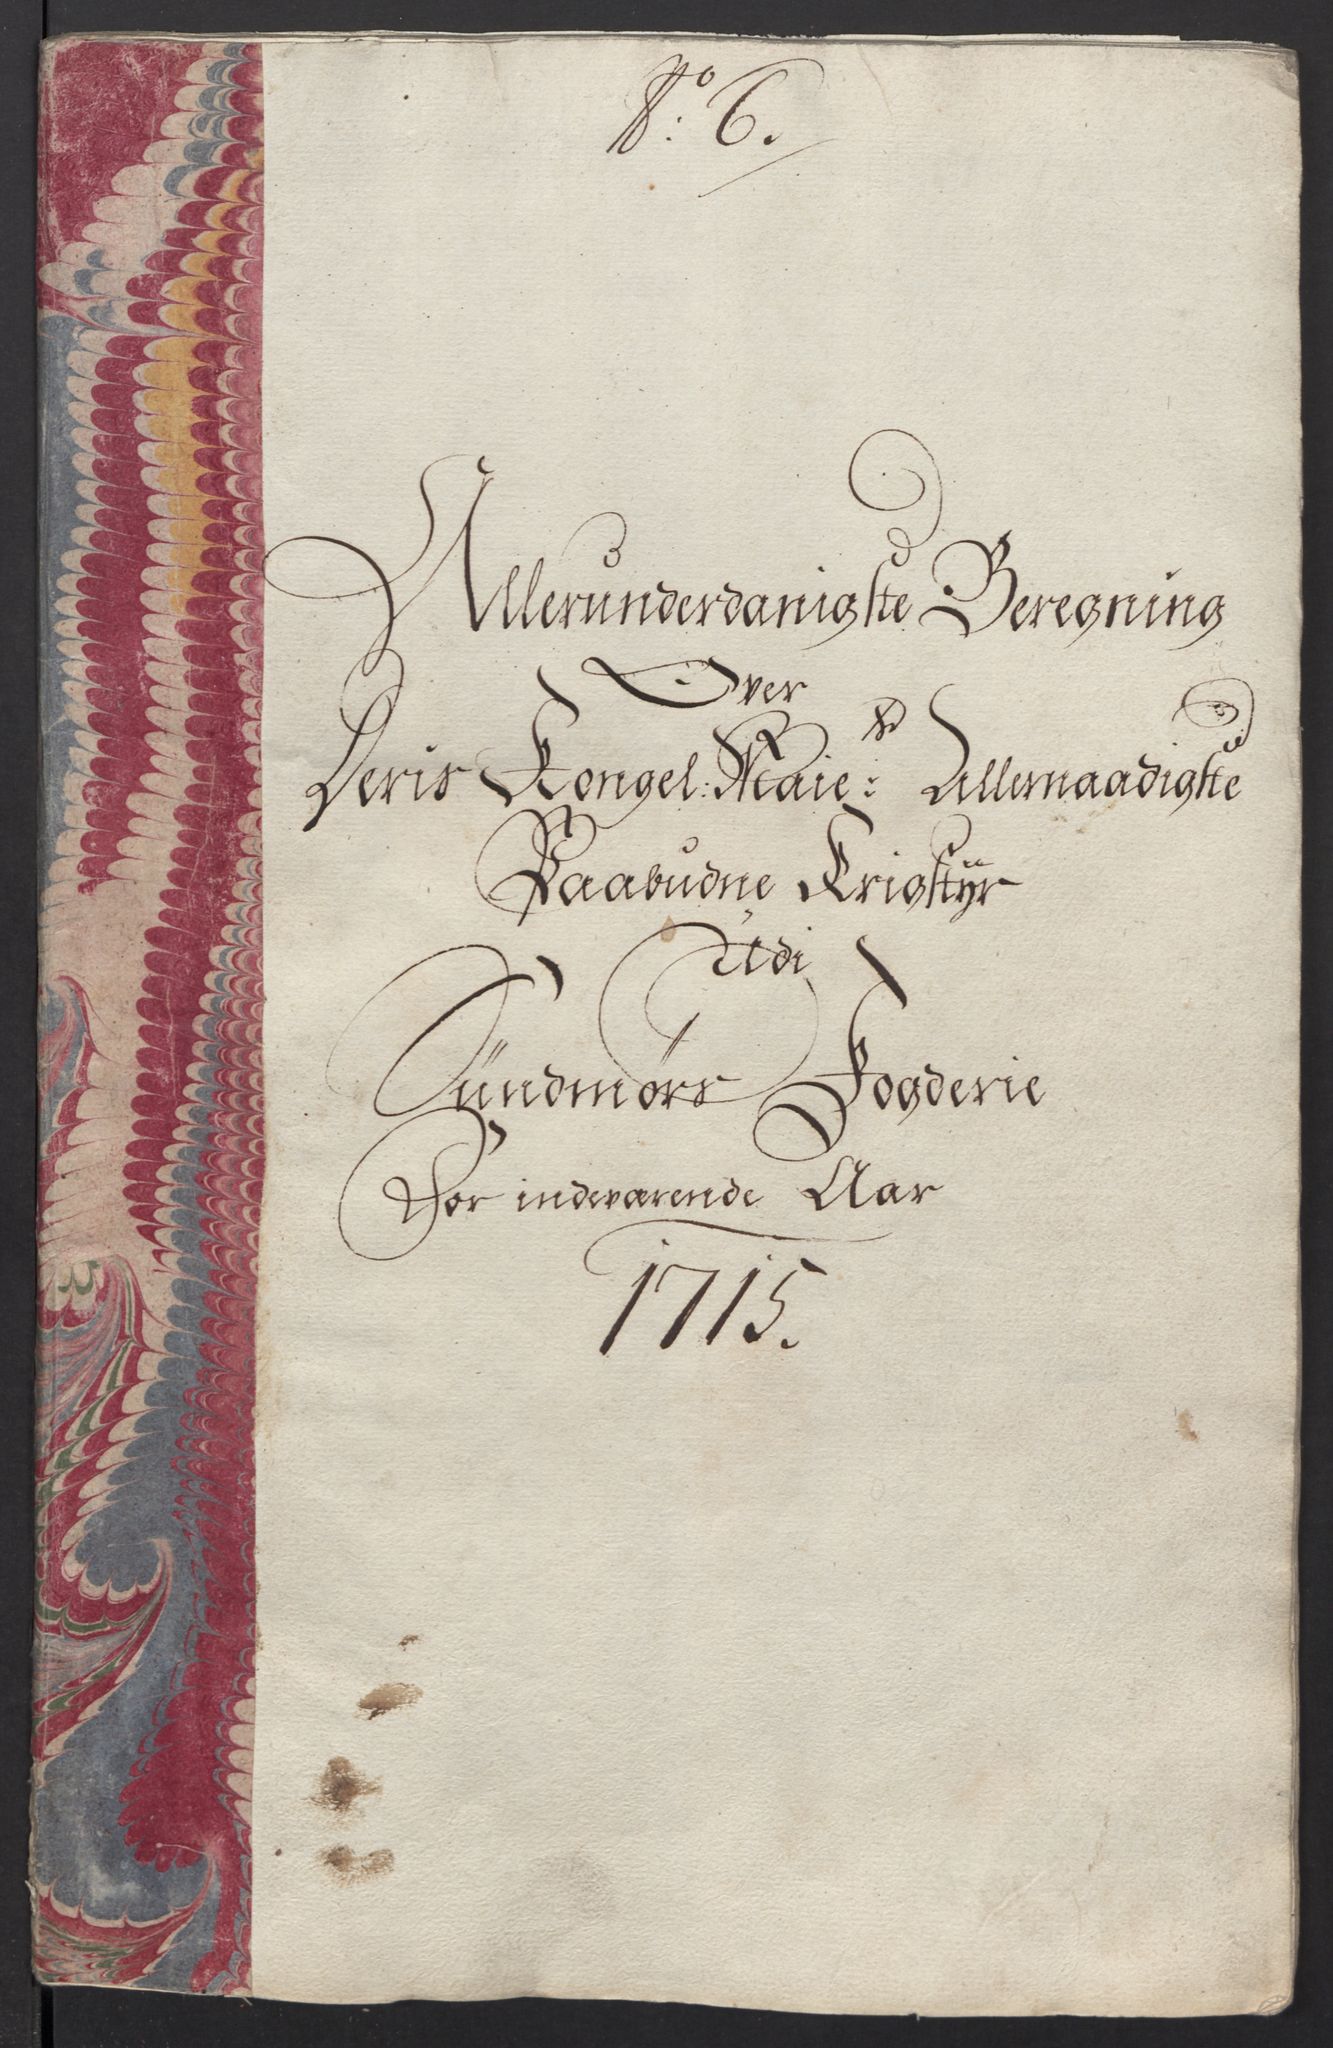 No: 6.
Allerunderdanigste Beregning
Over
Deris Kongel: Maie:ts Allernaadigste
Paabudne Krigstyr
Udi
Sündmörs Fogderie
For indeværende Aar
1715.